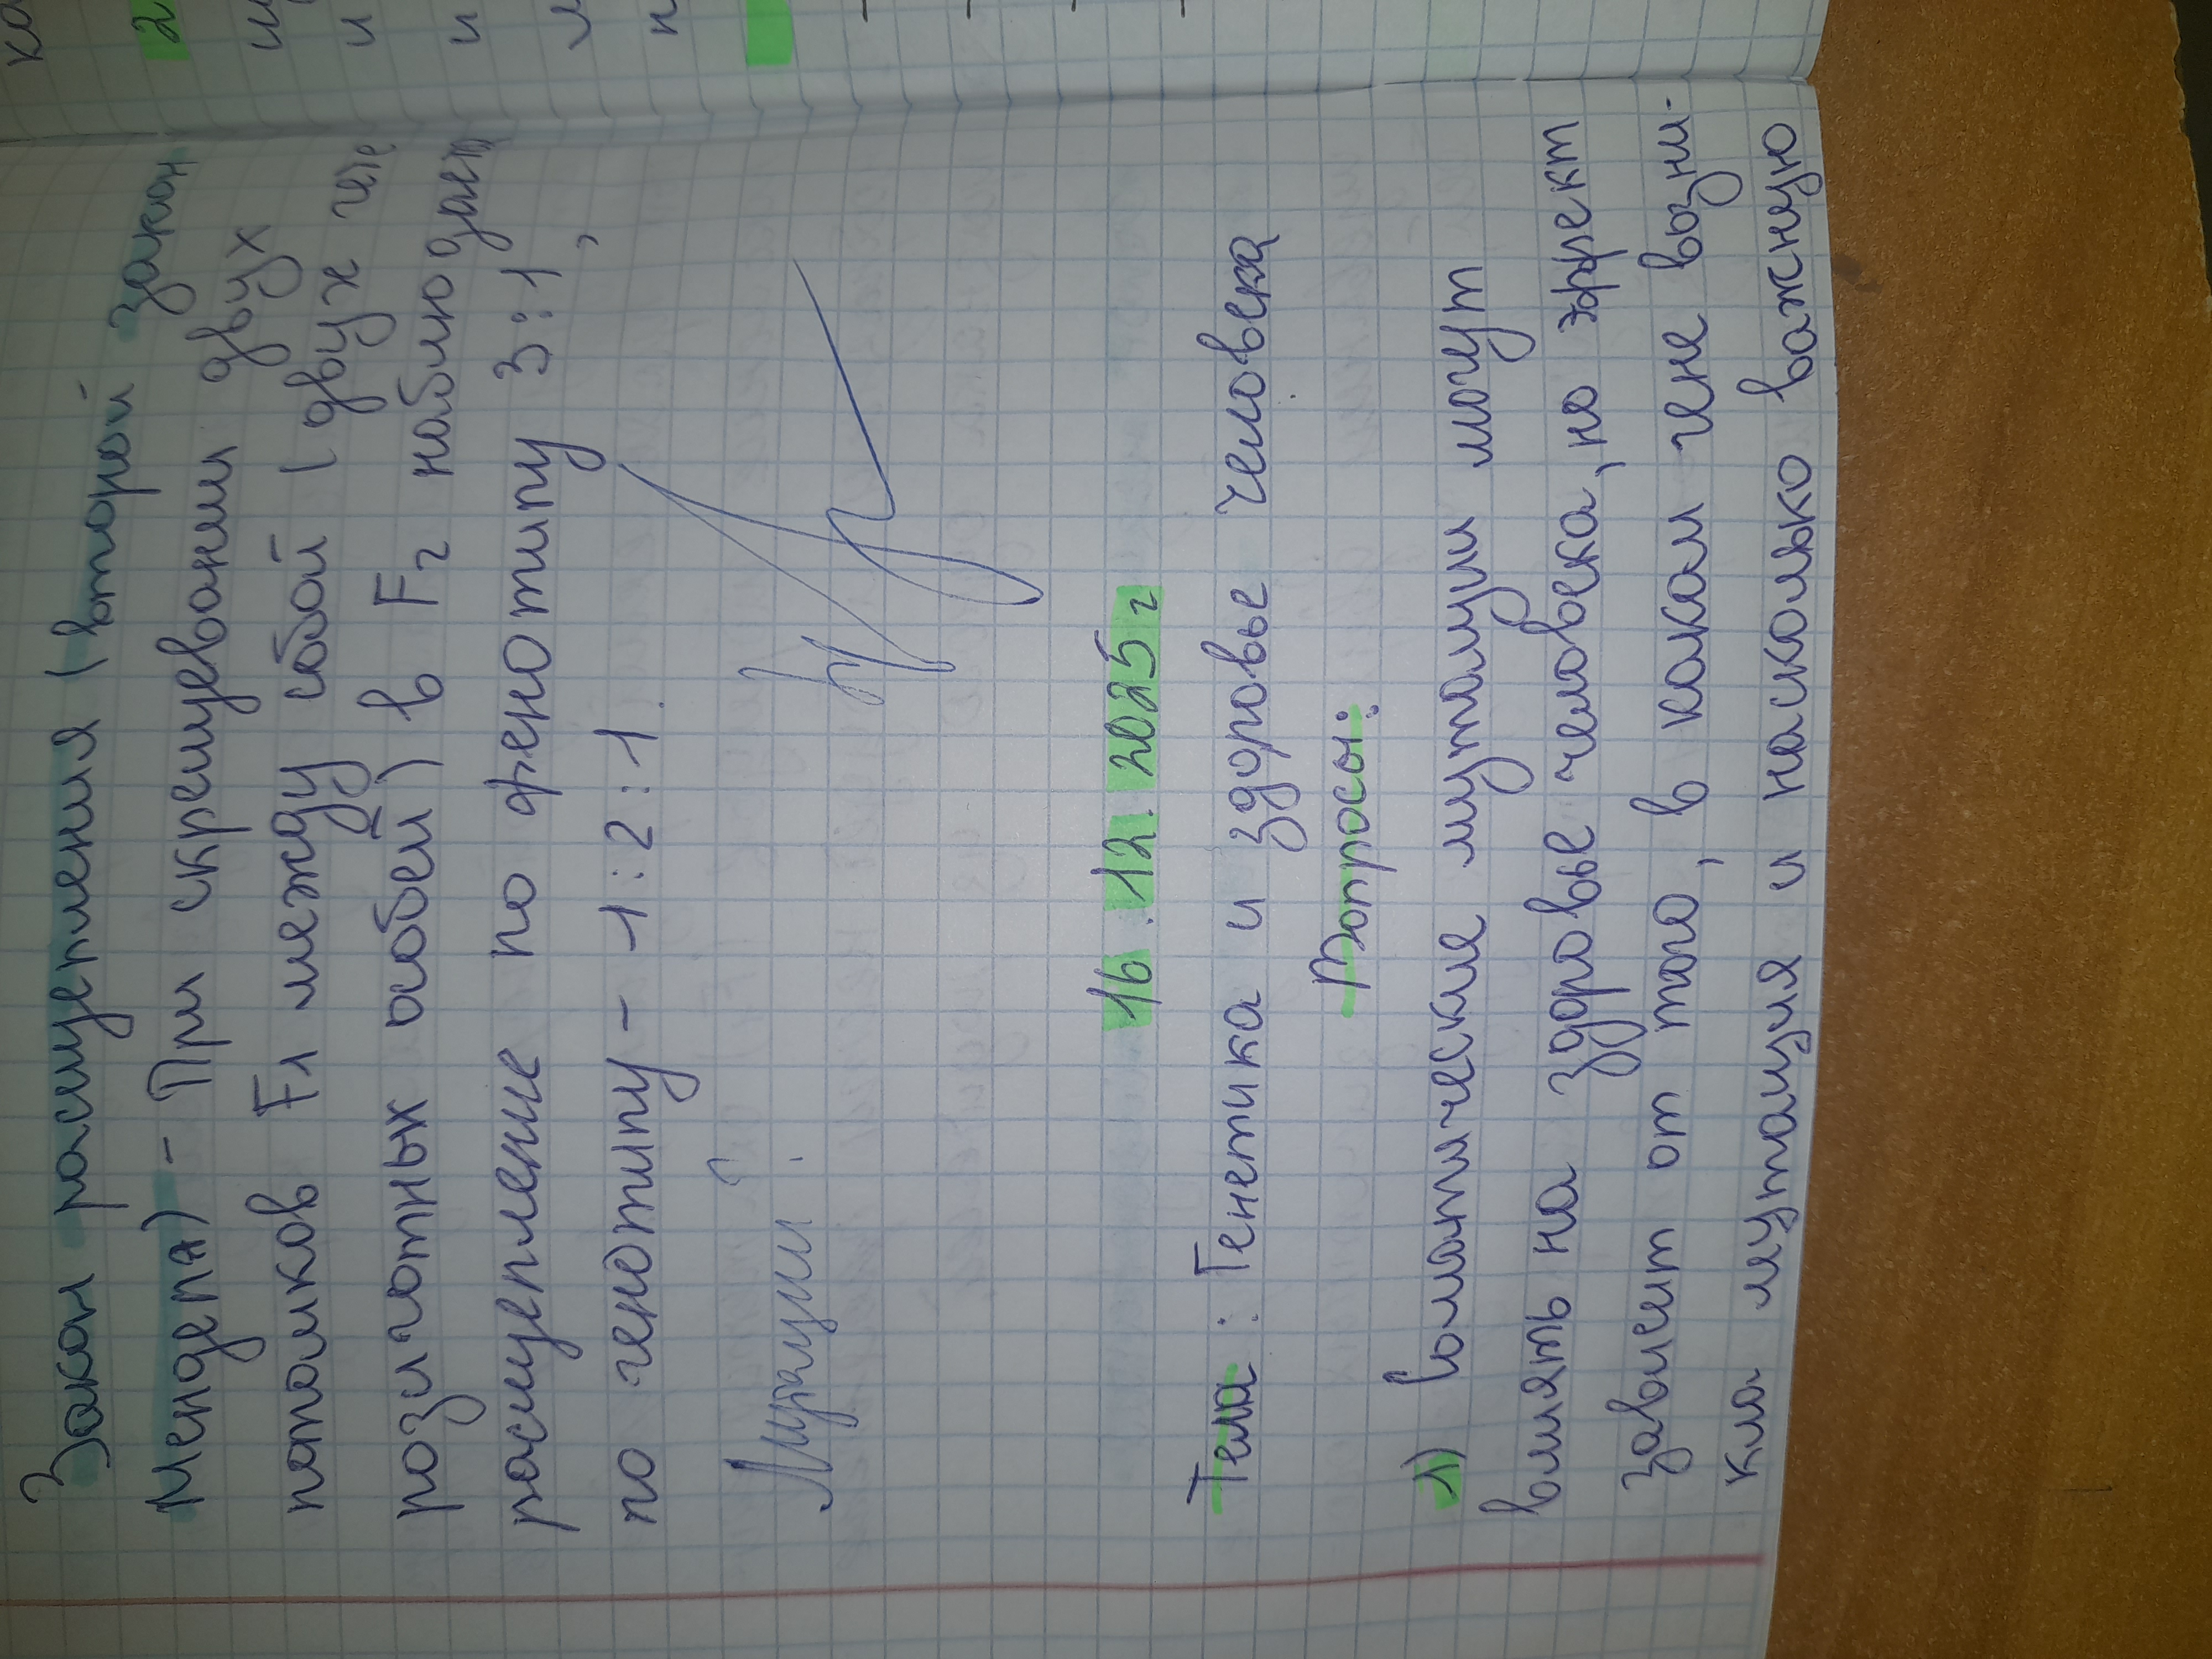 Закон расщепления (второй закон
Менделя) - При скрещивании двух
потомков F1 между собой (двух ге
розиготных особей) в F2 наблюдает
расщепление по фенотипу 3:1,
по генотипу - 1:2:1.
Мутации?
16.12.2025г
Тема: Генетика и здоровье человека
Вопросы:
1) Соматические мутации могут
влиять на здоровье человека, но эффект
зависит от того, в каком гене возни-
кла мутация и насколько важную